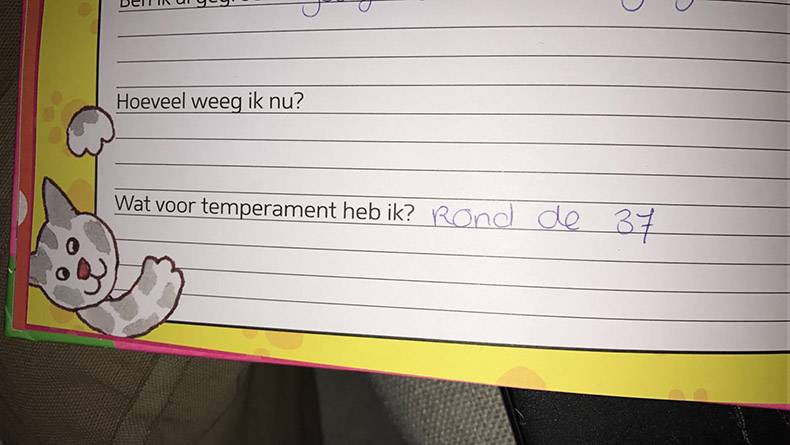 Hoeveel weeg ik nu?
Wat voor temperament heb ik? Rond de 37